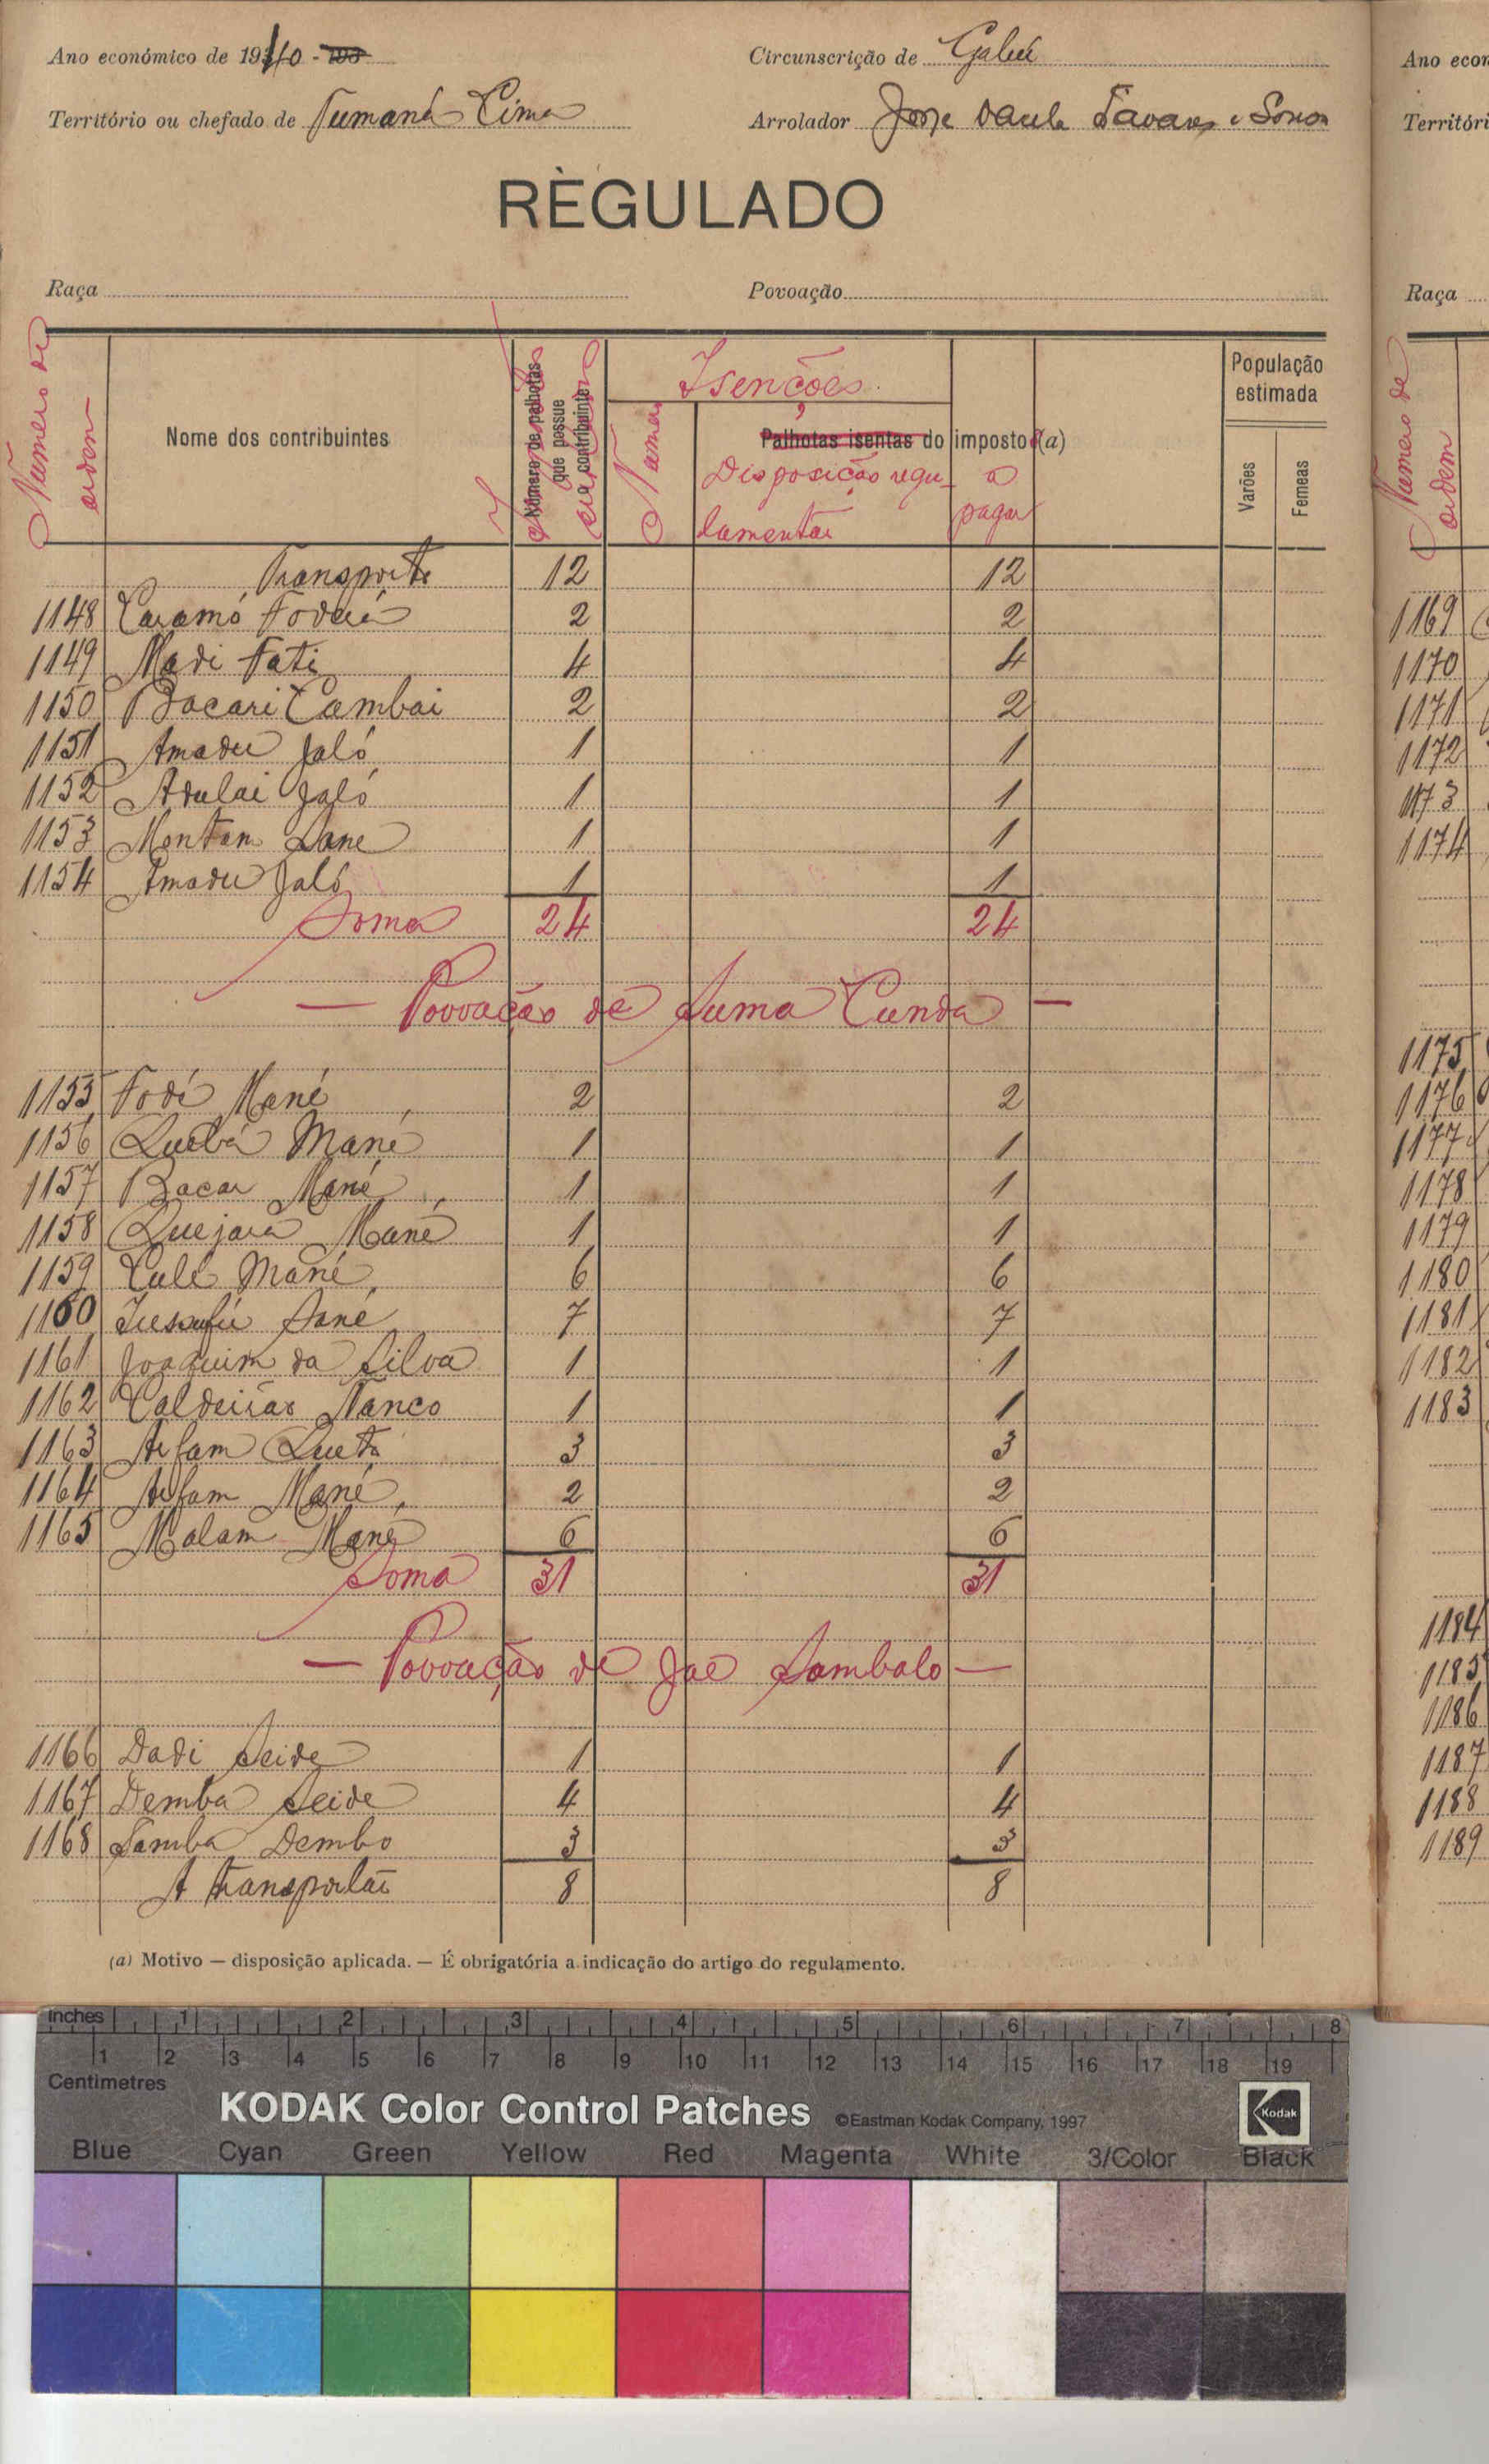 Ano económico de 1940 - 193
Circunscrição de Gabú
Território ou chefado de Tumaná Cima
Arrolador José Paula Tavares e Sousa
RÈGULADO
Raça
Povoação
Numero de ordem
Nome dos contribuintes
Número de palhotas que possue o contribuinte
Isenções
Numero
Palhotas isentas do imposto (a)
Disposição regulamentar
a pagar
População estimada
Varões
Femeas
Transporte 12 12
1148 Caramó Fodeia 2 2
1149 Madi Fati 4 4
1150 Bacari Cambai 2 2
1151 Amadu Jaló 1 1
1152 Adulai Jaló 1 1
1153 Montam Sane 1 1
1154 Amadu Jaló 1 1
Soma 24 24
— Povoação de Suma Cunda —
1155 Fodi Mané 2 2
1156 Quebá Mané 1 1
1157 Bacar Mané 1 1
1158 Quejara Mané 1 1
1159 Culé Mané 6 6
1160 Iussufú Sané 7 7
1161 Joaquim da Silva 1 1
1162 Caldeirao Nanco 1 1
1163 Arfam Queta 3 3
1164 Arfam Mané 2 2
1165 Malam Mané 6 6
Soma 31 31
— Povoação de Jae Sambalo —
1166 Dadi Seide 1 1
1167 Demba Seide 4 4
1168 Samba Dembo 3 3
A transportar 8 8
(a) Motivo — disposição aplicada. — É obrigatória a indicação do artigo do regulamento.
Ano econ
Territóri
Raça
Numero de ordem
1169
1170
1171
1172
1173
1174
1175
1176
1177
1178
1179
1180
1181
1182
1183
1184
1185
1186
1187
1188
1189
Inches 1 2 3 4 5 6 7 8
1 2 3 4 5 6 7 8 9 10 11 12 13 14 15 16 17 18 19
Centimetres
KODAK Color Control Patches ©Eastman Kodak Company, 1997 Kodak
Blue Cyan Green Yellow Red Magenta White 3/Color Black